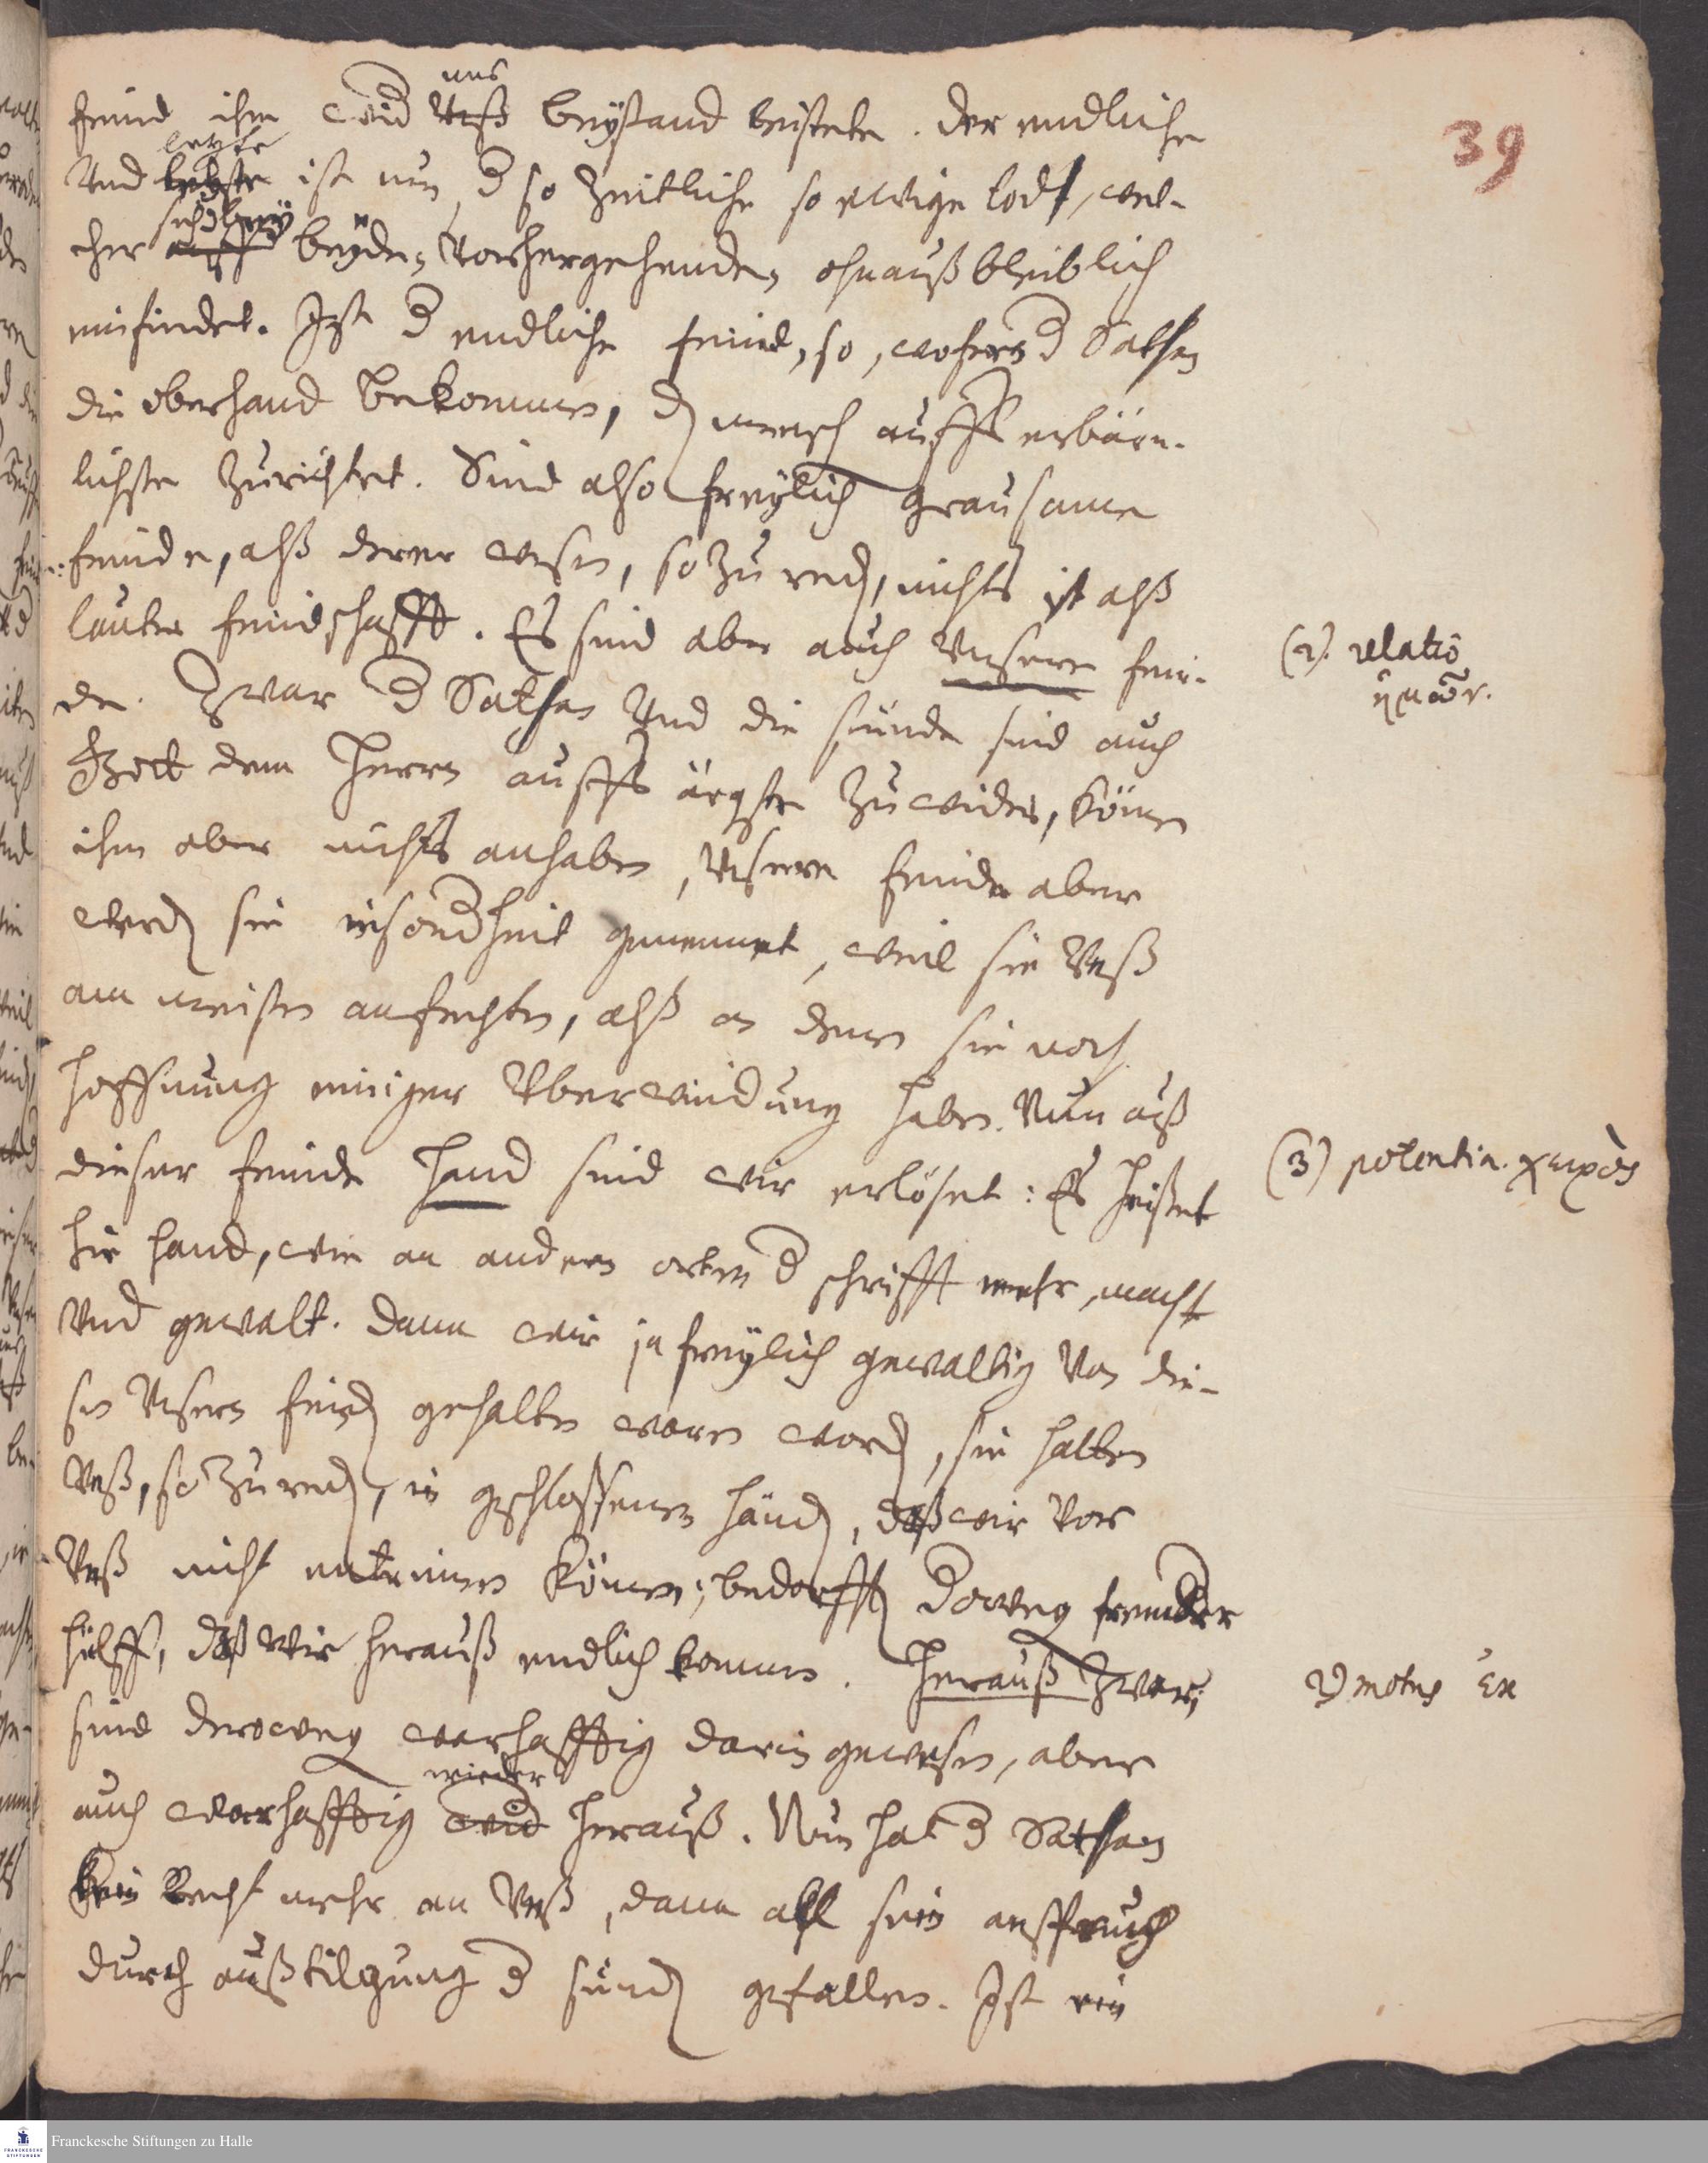 39
feind ihn wid uns beÿstand leistete. Der endliche
Vnd letzte ist nun d so zeitliche so ewige todt, wel-
cher sich beÿ beÿden vorhergehenden ohnaußbleiblich
einfindet. Ist d endliche feind, so, wofern d Sathan
die oberhand bekommen, d mensch auffs erbärm-
lichste zurichtet. Sind also freÿlich grausame
feinde, alß derer wesen, so zu red, nichts ist alß
lauter feindschafft. Es sind aber auch Vnsere fein-
de. Zwar d Sathan Vnd die sünde sind auch
Gott dem Herrn auffs ärgste zuwider, könen
ihm aber nichts anhaben, Vnsere feinde aber
werd sie insondheit genennet, weil sie Vnß
am meisten anfechten, alß an denen sie noch
hoffnung einiger Vberwindung haben. Nun auß
dieser feinde Hand sind wir erlöset: Es heißet
hie hand, wie an andern orten d schrifft mehr, macht
Vnd gewalt. Dann wir ja freÿlich gewaltig Von die-
sen Vnsern feind gehalten waren word, sie hatten
Vnß, so zu red, in geschlossenen händ, daß wir Vor
Vnß nicht entrinnen könen; bedorfft doweg frembder
hülff, daß wir herauß endlich kommen. Herauß zwar;
sind deroweg warhafftig darin gewesen, aber
auch warhafftig wieder herauß. Nun hat d Sathan
kein Recht mehr an Vnß, dann all sein anspruch
durch außtilgung d sünd gefallen. Ist ein
(2). relatio
ἡμῶν.
(3) potentia. χειρὸς
motus ἐκ
Franckesche Stiftungen zu Halle
FRANCKESCHE STIFTUNGEN